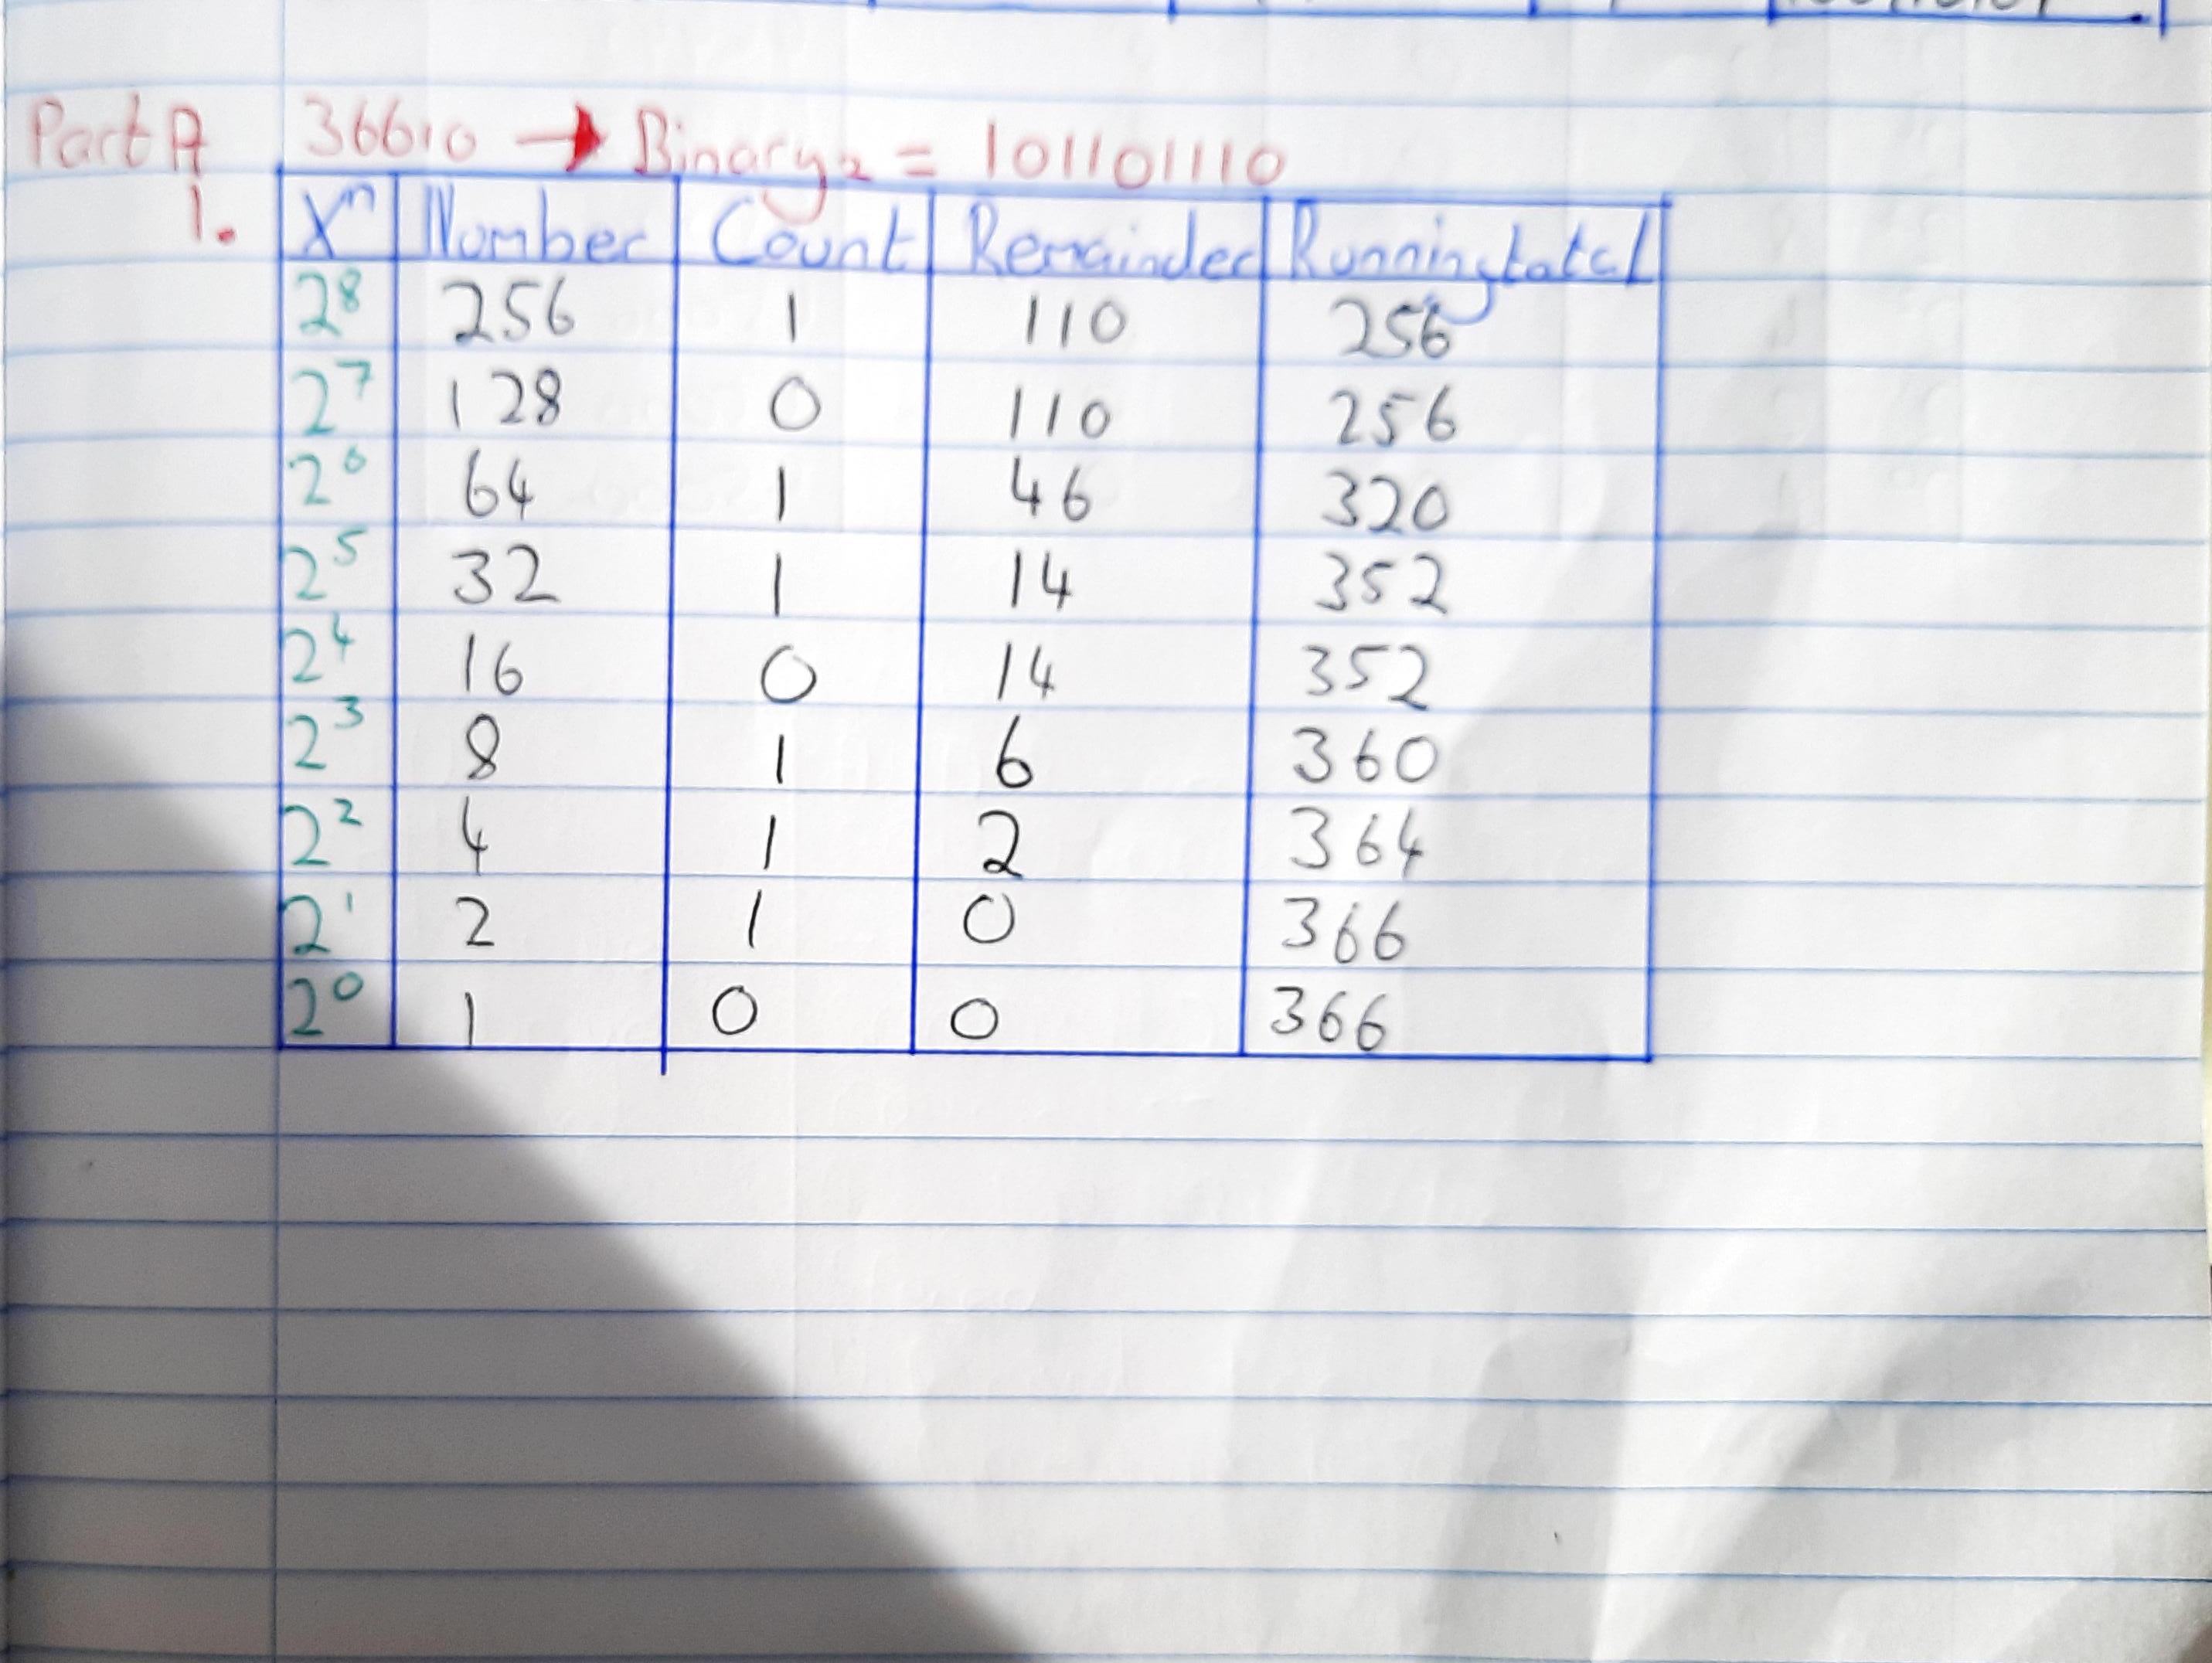 Part A 366₁₀ → Binary₂ = 101101110
1. Xⁿ Number Count Remainder Running total
2⁸ 256 1 110 256
2⁷ 128 0 110 256
2⁶ 64 1 46 320
2⁵ 32 1 14 352
2⁴ 16 0 14 352
2³ 8 1 6 360
2² 4 1 2 364
2¹ 2 1 0 366
2⁰ 1 0 0 366